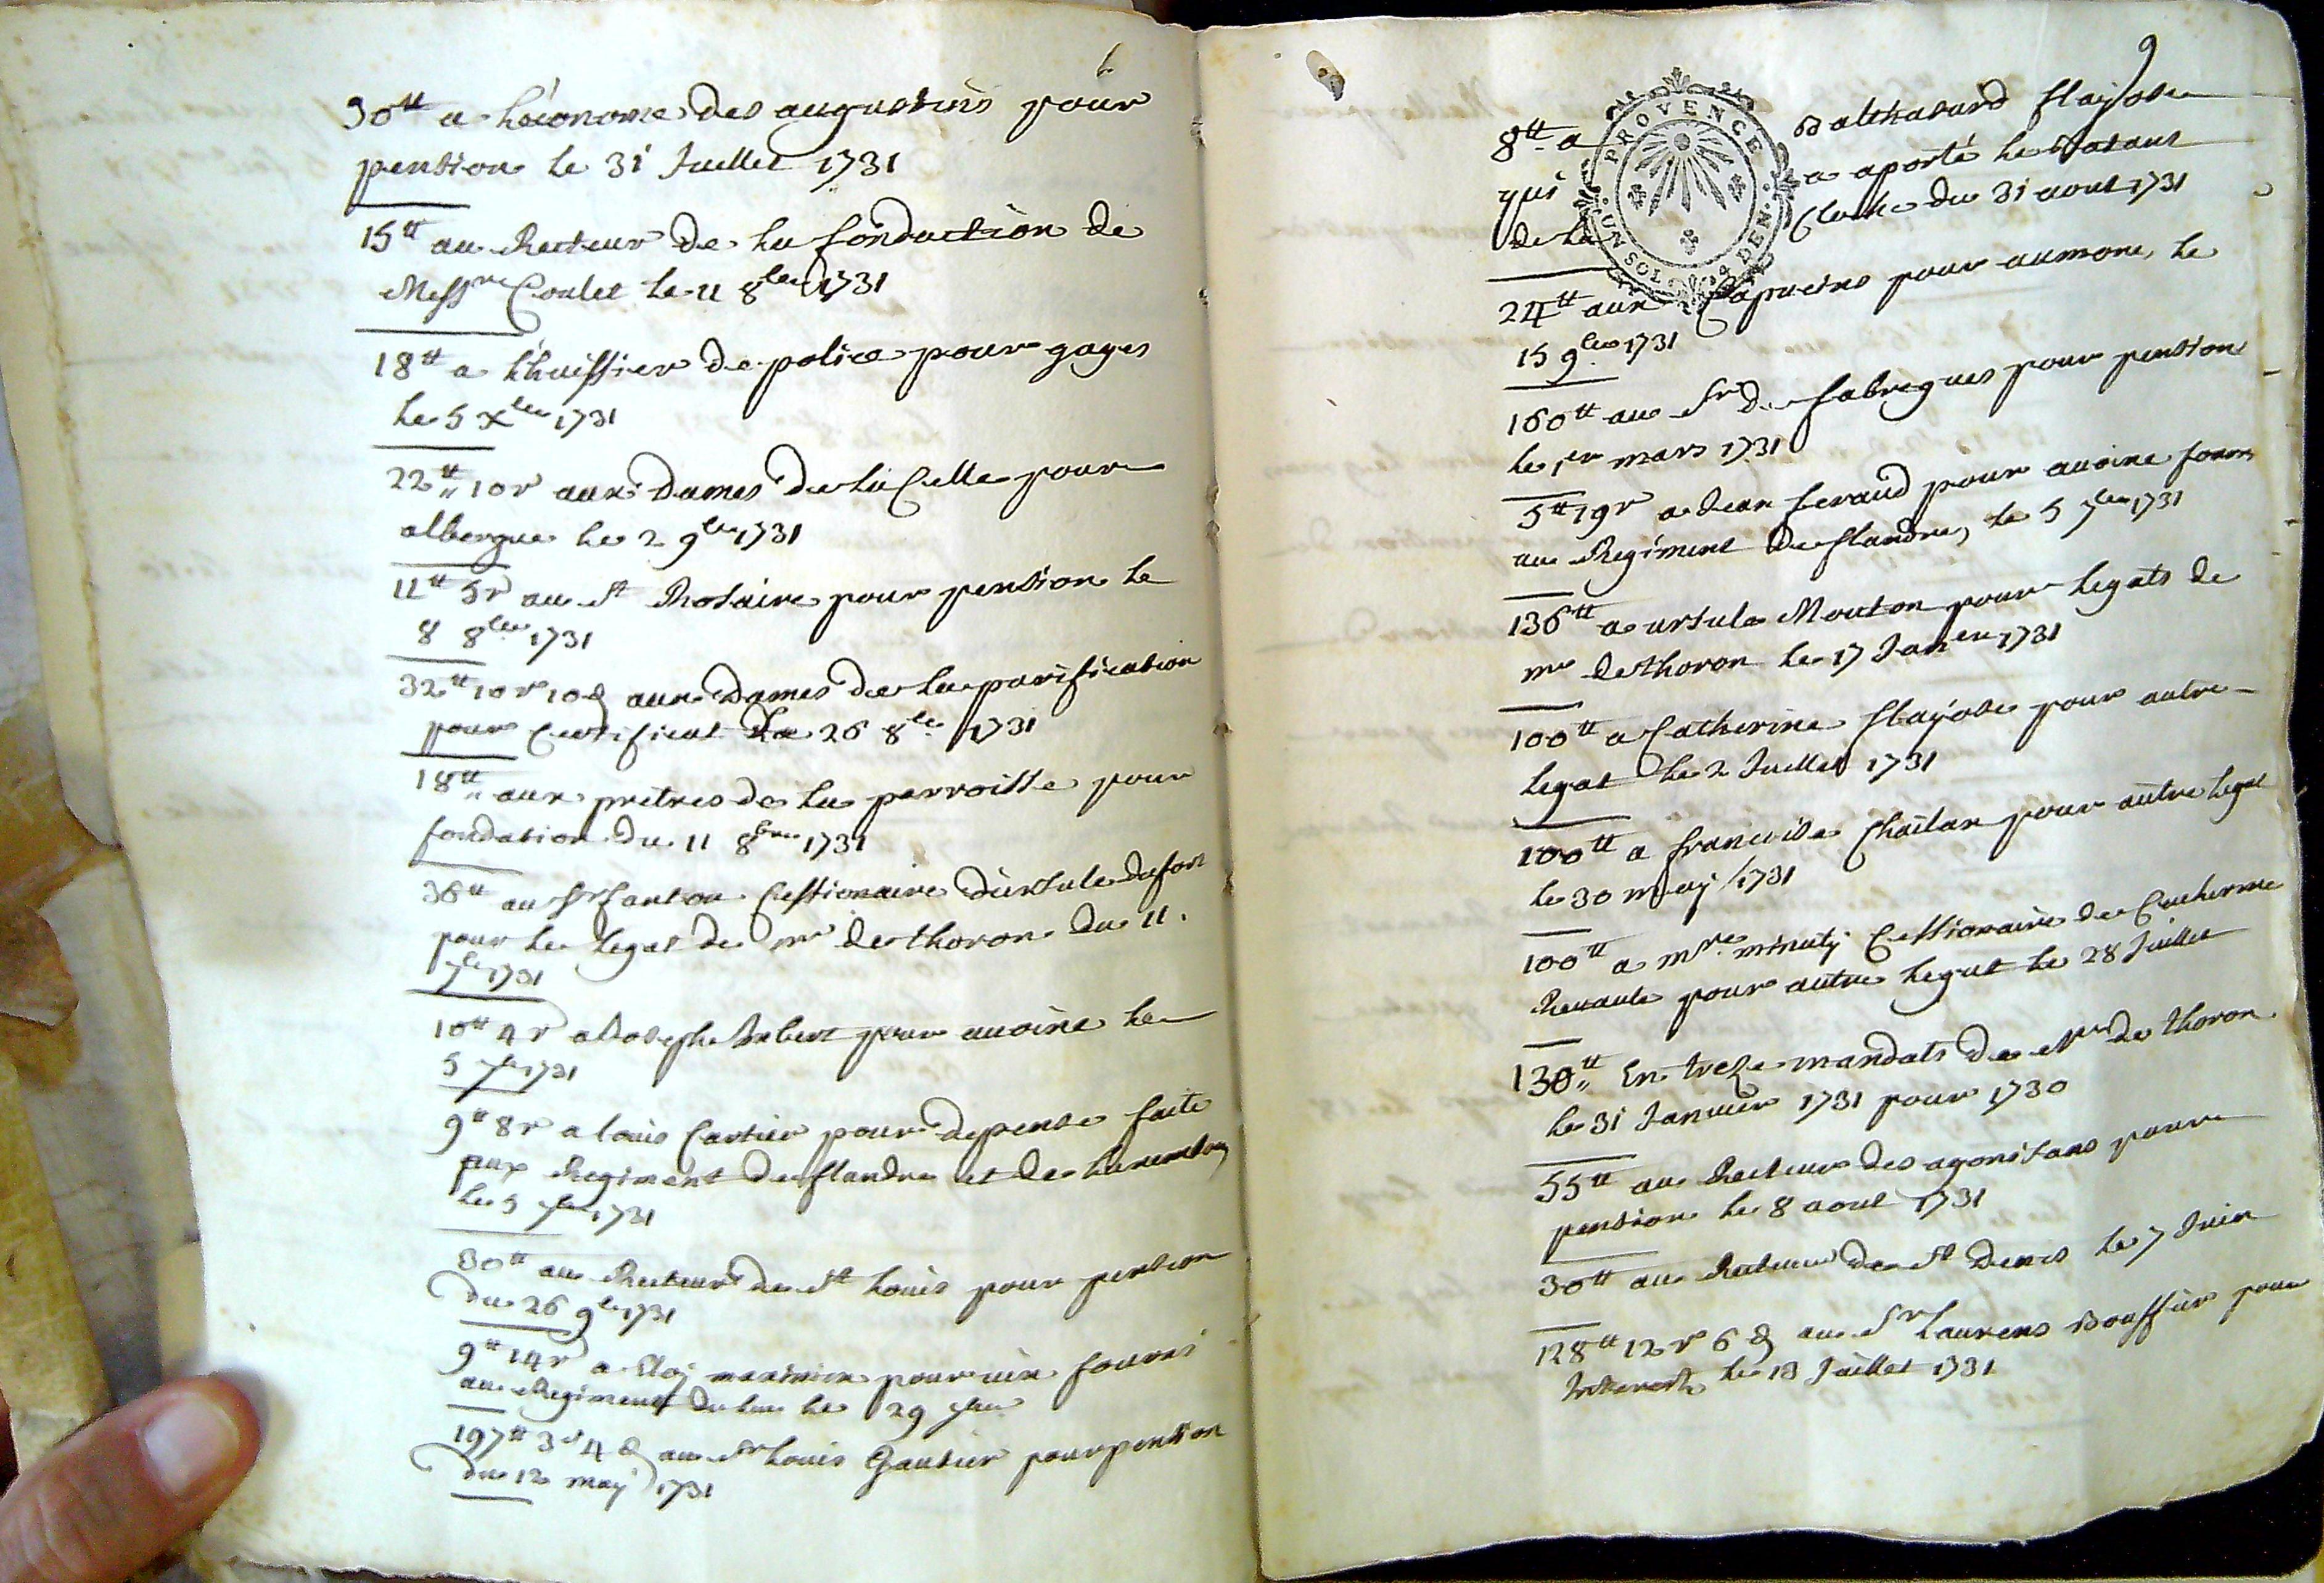 30tt a l'econome des augustins pour
pension le 31 Juillet 1731
15tt au Recteur de la fondaction de
Messre Coulet le 11 8bre 1731
18tt a l'huissier de police pour gages
le 5 Xbre 1731
22tt 10s aux Dames de la Celle pour
albergue le 2 9bre 1731
11tt 5s au st Rosaire pour pension le
8 8bre 1731
32tt 10s 10d aux Dames de la purification
pour Certificat le 26 8bre 1731
18tt aux pretres de la parroisse pour
fondation du 11 8bre 1731
36tt au Sr Cessionaire d'ursule
pour le legat de mr de thoron du 11.
7bre 1731
10tt 4s a Joseph Imbert pour avoine le
5 7bre 1731
9tt 8s a louis Cartier pour depense faite
aux Regiment de flandre et de
le 5 7bre 1731
30tt au Recteur de st louis pour pension
du 26 9bre 1731
9tt 14s a Eloj maximin pour vin fourni
au Regiment le 29
197tt 3s 4d au Sr louis Gautier pour pension
du 12 maij 1731
9
8tt a Balthasard flaÿose
qui a aporté le batant
de la Cloche du 31 aout 1731
PROVENCE
UN SOL 4 DEN.
24tt aux Capucins pour aumone, le
15 9bre 1731
160tt au Sr de fabregues pour pension
le 1er mars 1731
5tt 19s a Jean feraud pour avoine fourni
au Regiment de flandre, le 5 7bre 1731
136tt a ursule Mouton pour legats de
mr de thoron le 17 Janer 1731
100tt a Catherine flaÿose pour autre
legat le 2 Juillet 1731
100tt a francoise Chailan pour autre legat
le 30 maÿ 1731
100tt a mre minuty Cessionaire de Catherine
pour autre legat le 28 Juillet
130tt En treze mandats de Mr de thoron
le 31 Janvier 1731 pour 1730
55tt au Recteur des agonisans pour
pension le 8 aout 1731
30tt au Recteur de St Denis le 7 Juin
128tt 12s 6d au Sr Laurens Bouffier pour
Interest le 13 Juillet 1731